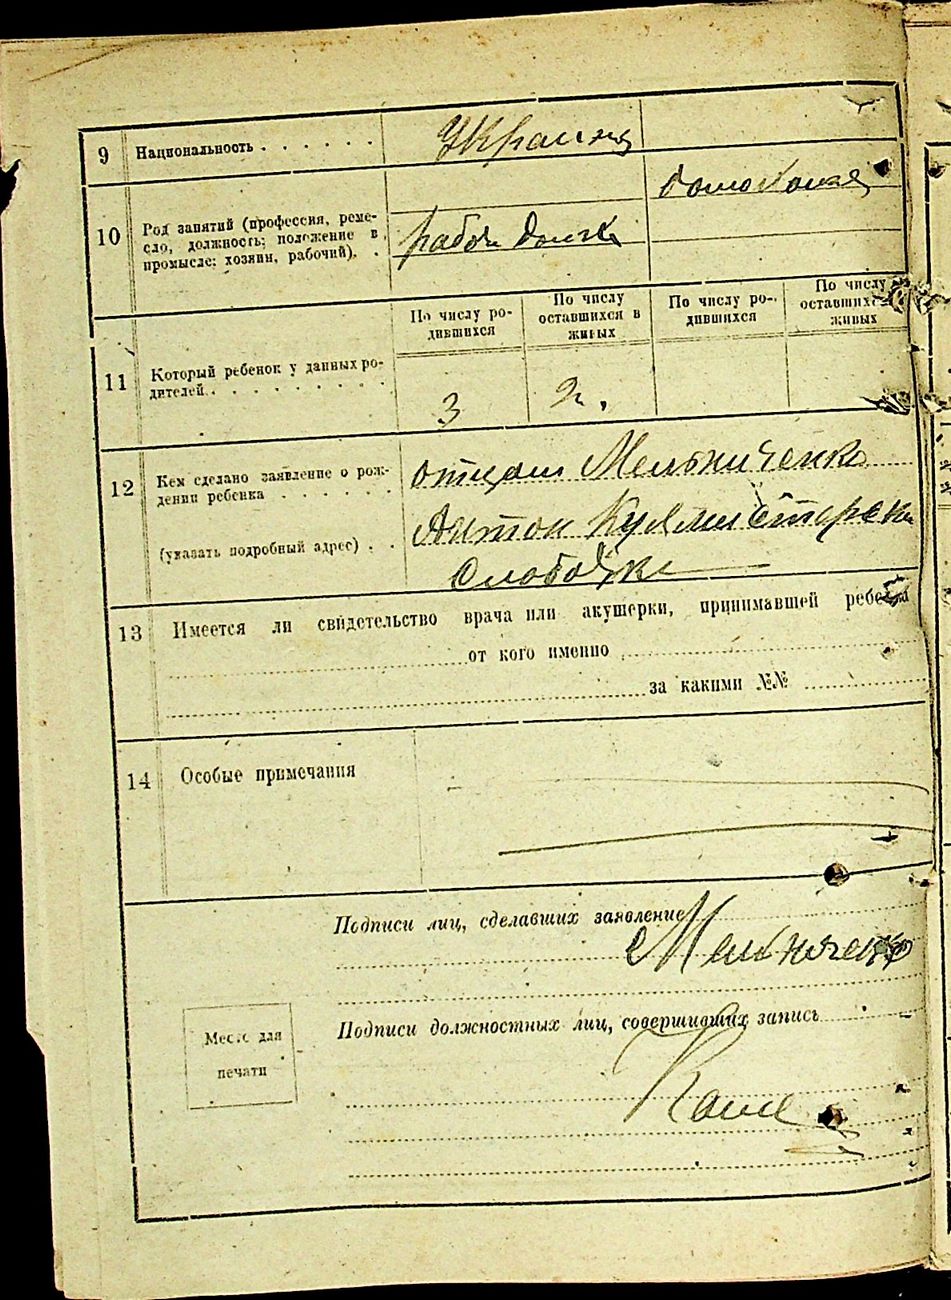 9 Национальность . . . . . . Украинц
10 Род занятий (профессия, реме-
сло, должность; положение в
промысле: хозяин, рабочий). .
домохоз
рабоч
11 Который ребенок у данных ро-
дителей. . . . . . . . .
По числу ро-
дившихся
По числу
оставшихся в
живых
По числу ро-
дившихся
По числу
оставшихся
живых
3 2.
12 Кем сделано заявление о рож-
дении ребенка . . . . . .
(указать подробный адрес) . .
отцом Мельниченко
Антон
Слободка
13 Имеется ли свидетельство врача или акушерки, принимавшей ребенка
от кого именно
за какими №№
14 Особые примечания
Подписи лиц, сделавших заявление
Мельниченко
Подписи должностных лиц, совершивших запись
Место для
печати